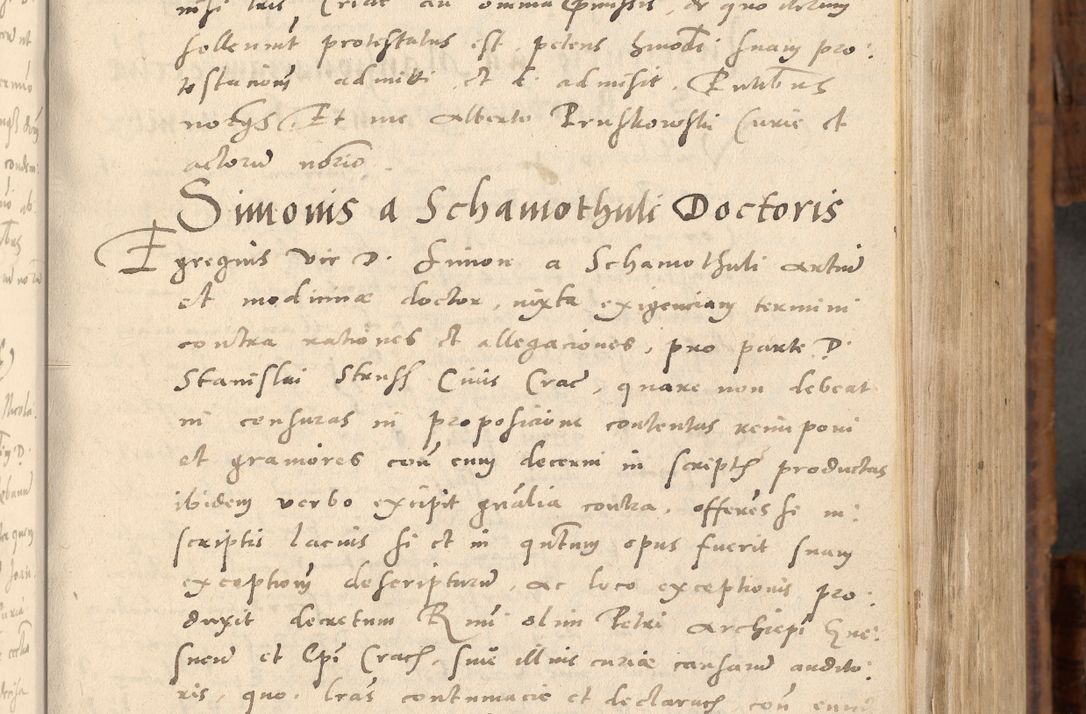 sollennit protestatus est, petens hmodi suam pro:
testacionem admitti et d. admisit. Pntibus
notrys Et me Alberto Pruskowski Curie et
actorum notrio.
Simonis a Schamothuli Doctoris
Egregius vir D. Simon a Schamothuli Artium
et medicinae doctor, iuxta exigenciam termini
contra rationes et allegaciones, pro parte D.
Stanislai Struss Civis Crac, quare non debeat
in censuras in proposicione contentas reimponi
et graviores con eum decerni in scriptis productas
ibidem verbo excipit gnalia contra, offeres se in:
scriptis lacius si et in quntum opus fuerit suam
exceptionem descripturum, ac loco exceptionis pro:
duxit decretum Rmi olim Petri Archiepi Gne:
snen et Epi Crac, sive illius curiae causarum audito:
ris, quo lras contumacie et declarac con eum